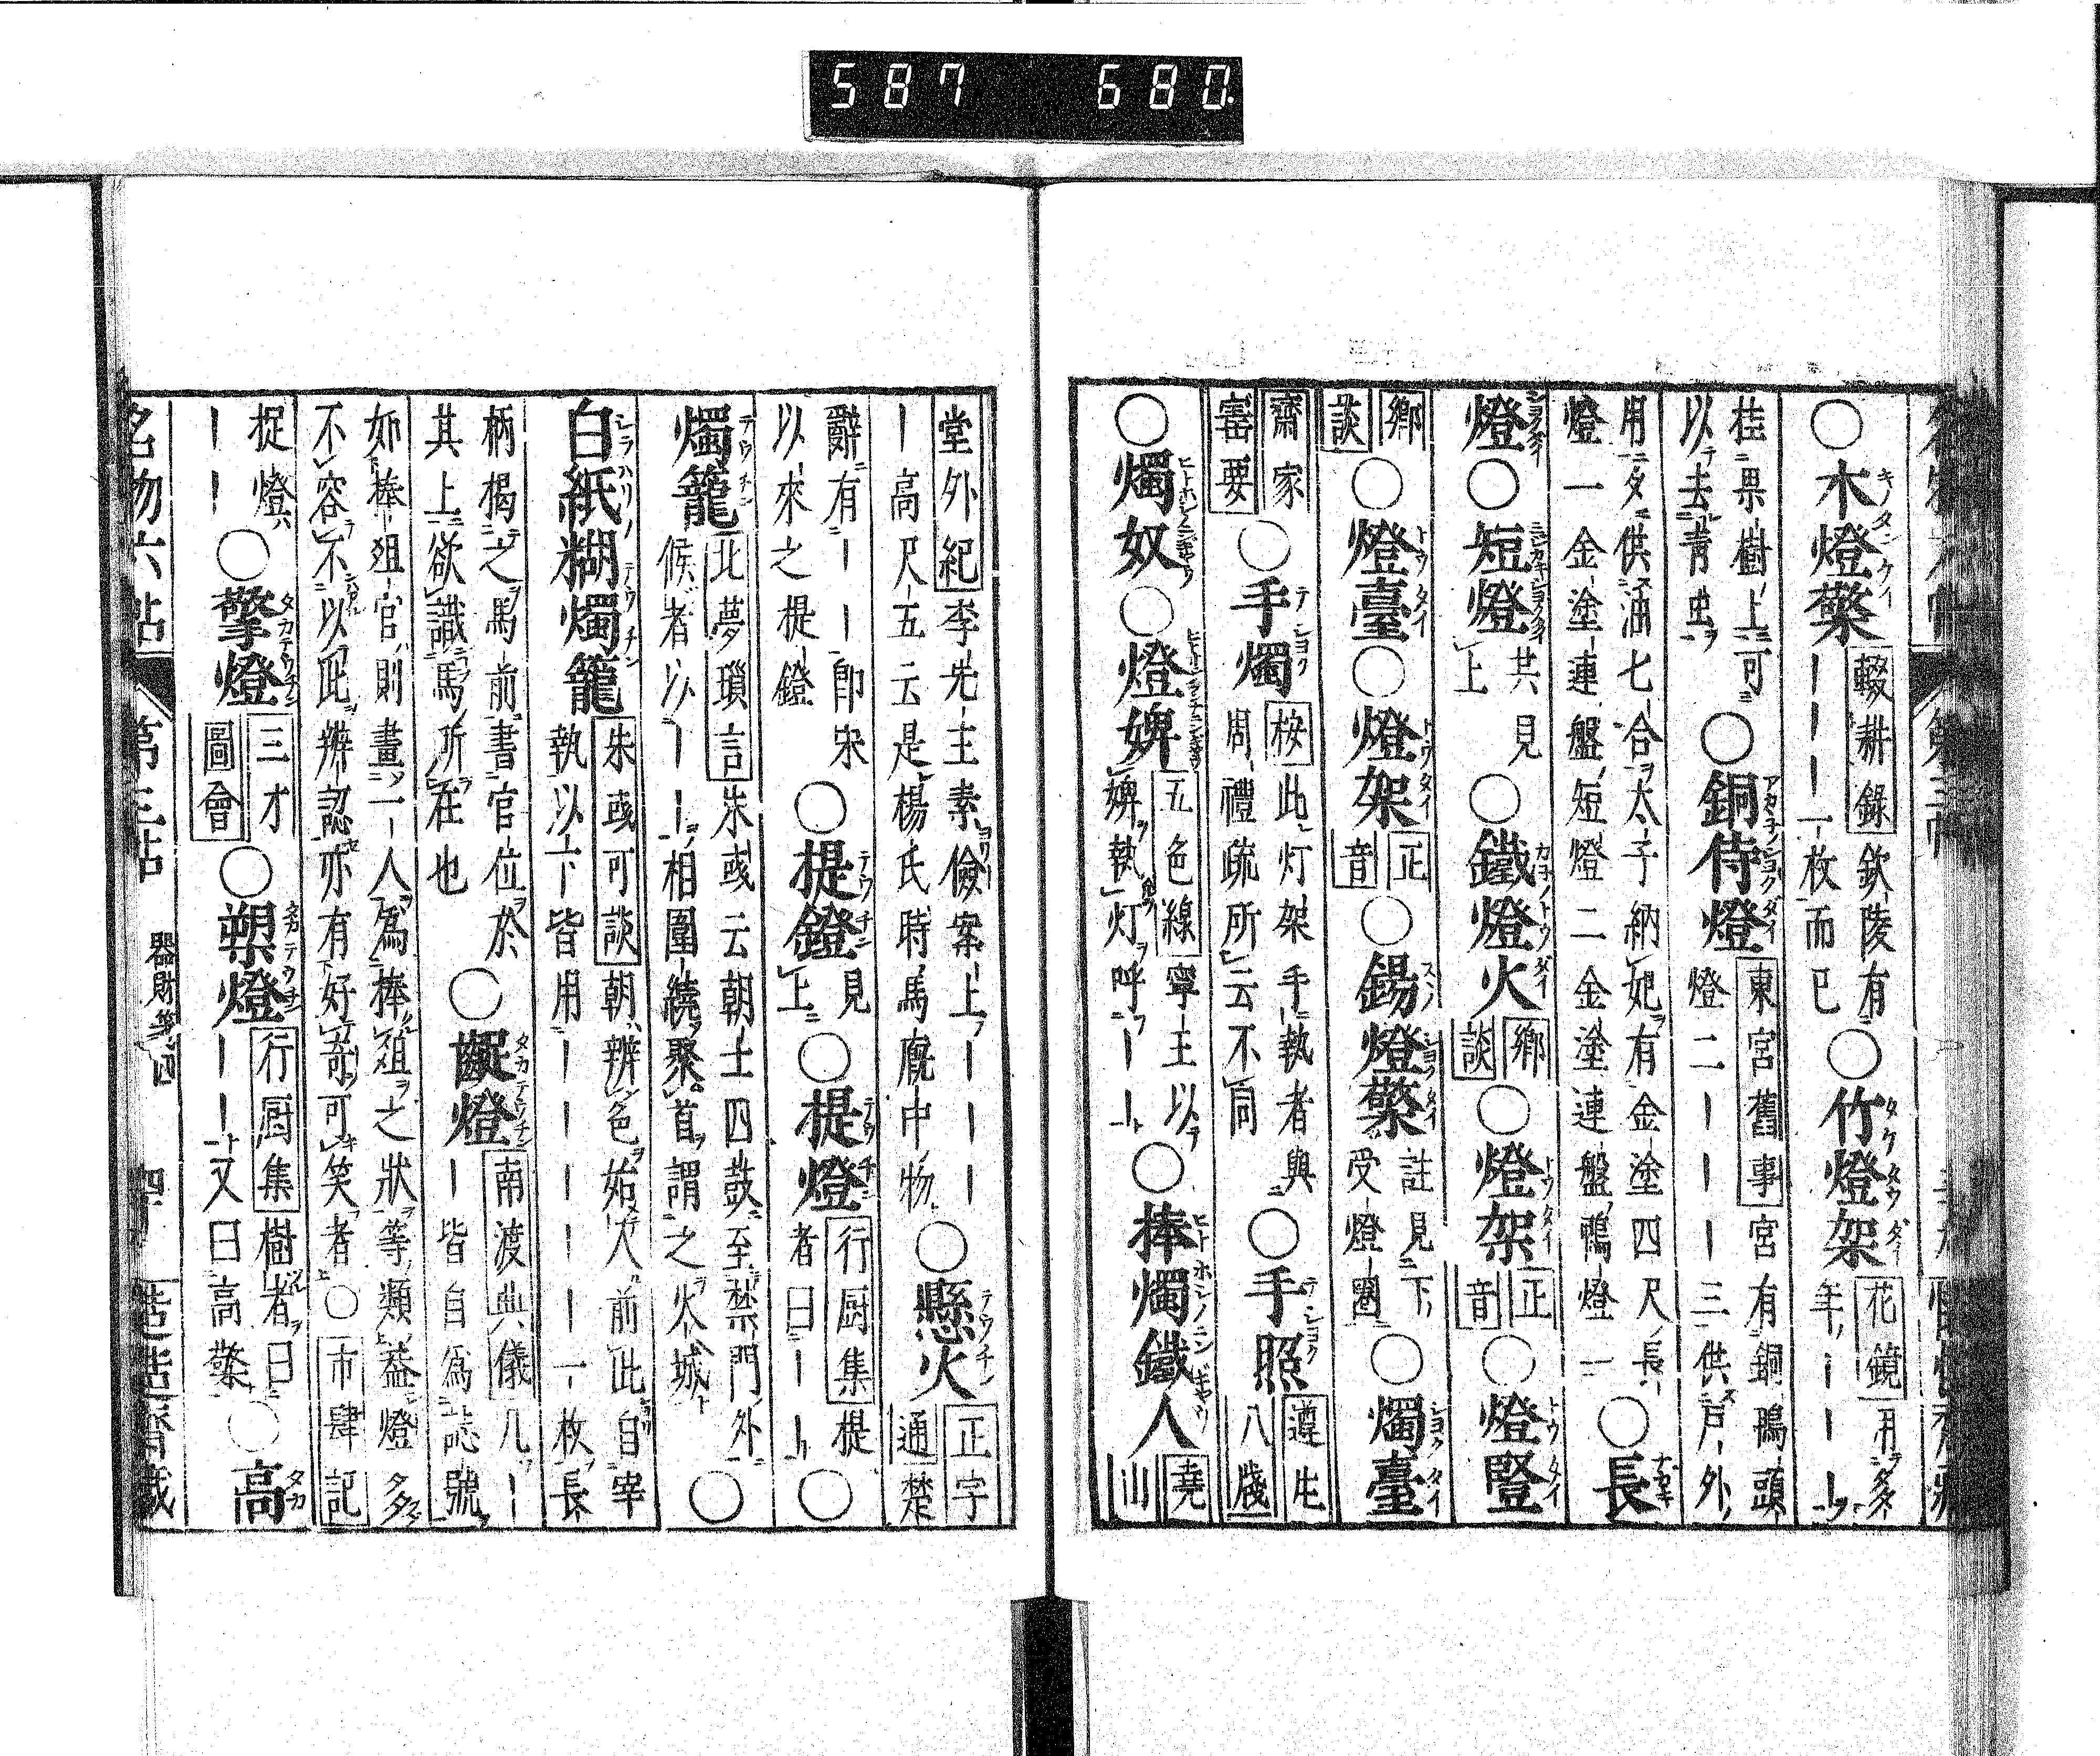 587 680
○木燈檠 輟耕錄 欽陵有 ｜｜｜一枚而已 ○竹燈架 花鏡 用多年ノ｜｜｜ヲ
桂果樹ノ上ニ可以去青虫ヲ ○銅侍燈 東宮舊事 宮有銅鴨頭燈二｜｜｜三供戸外ノ
用ニ夕供ス油七合ヲ太子納妃ヲ有金塗四尺ノ長燈一金塗連盤ノ短燈二金塗連盤鴨燈一 ○長
燈 ○短燈 共見上 ○鐵燈火 鄉談 ○燈架 正音 ○燈竪
鄉談 ○燈臺 ○燈架 正音 ○錫燈檠 註見下ノ受燈圏 ○燭臺
齋家寶要 ○手燭 桉此灯架手執者與周禮疏所云不同 ○手照 遵生八牋
○燭奴 ○燈婢 五色線 寧王以婢執灯ヲ呼｜｜ト ○捧燭鐵人 堯山
堂外紀 李先主素儉案上｜｜｜｜高尺五云是楊氏時馬廐中ノ物 ○懸火 正字通 楚
辭ニ有｜｜即宋以來之提鐙 ○提鐙 見上 ○提燈 行厨集 提者曰｜｜ト ○
燭籠 北夢瑣言 朱或云朝士四鼓至禁門外候者以｜｜相圍繞聚首謂之火城ト ○
白紙糊燭籠 朱或可談 朝辨色始入前此自宰執以下皆用｜｜｜｜｜一枚長
柄揭之馬前書官位於其上欲識馬所在也 ○齯燈 南渡典儀 凡｜｜皆自為誌號
如捧俎官則畫一人為捧俎之狀等類蓋燈多不容不以此辨認亦有好奇可笑者 ○市肆記
提燈｜｜ ○擎燈 三才圖會 ○槊燈 行厨集 樹者曰｜｜ト又曰高檠 ○高
名物六帖 第三帖 器財箋四 四十